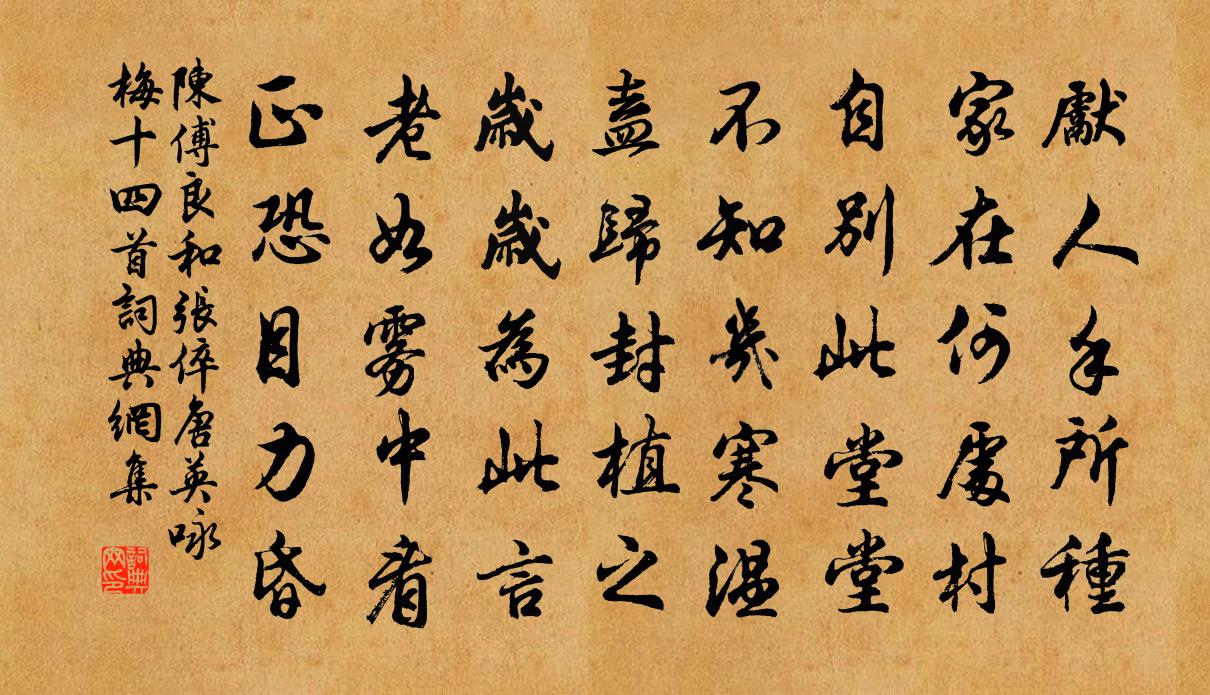 獻人手所種
家在何處村
自別此堂堂
不知幾寒溫
盍歸封植之
歲歲為此言
老如霧中看
正恐目力昏
陳傅良和張倅唐英咏
梅十四首詞典網集
詞典網印